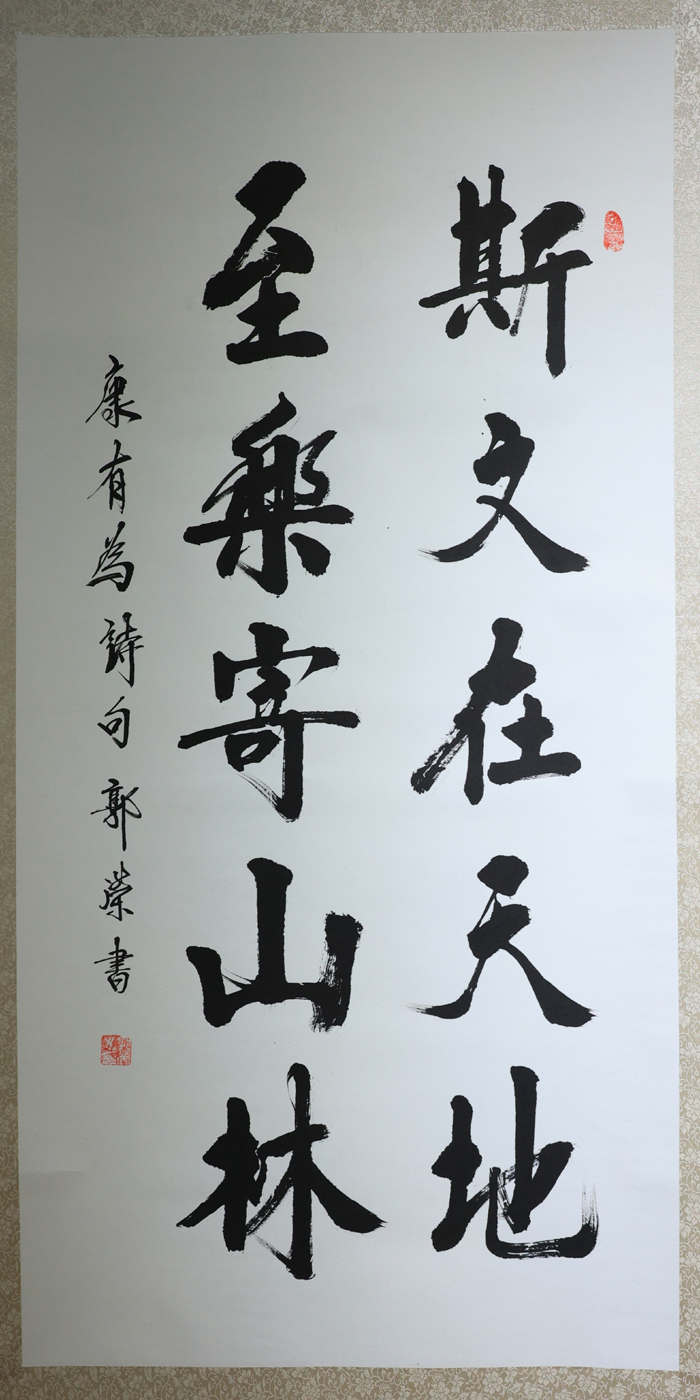 斯文在天地
至樂寄山林
康有為詩句 郭榮書